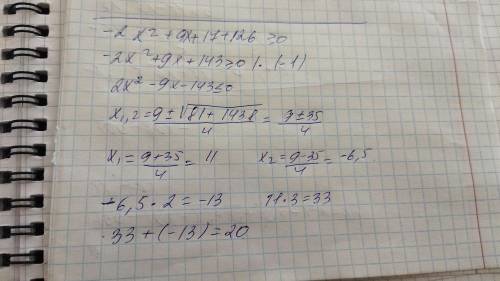 -2x² + 9x + 17 + 126 ≥ 0
-2x² + 9x + 143 ≥ 0 |·(-1)
2x² - 9x - 143 ≤ 0
x₁,₂ = (9 ± √(81 + 143·8))/4 = (9 ± 35)/4
x₁ = (9 + 35)/4 = 11 x₂ = (9 - 35)/4 = -6,5
-6,5 · 2 = -13 11 · 3 = 33
33 + (-13) = 20